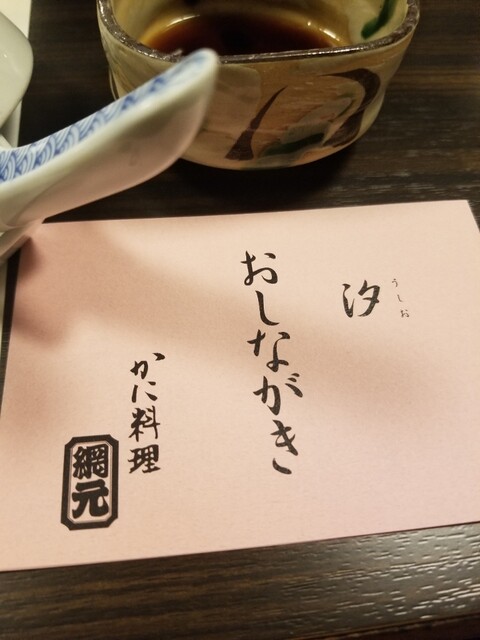 汐
うしお
おしながき
かに料理
網元